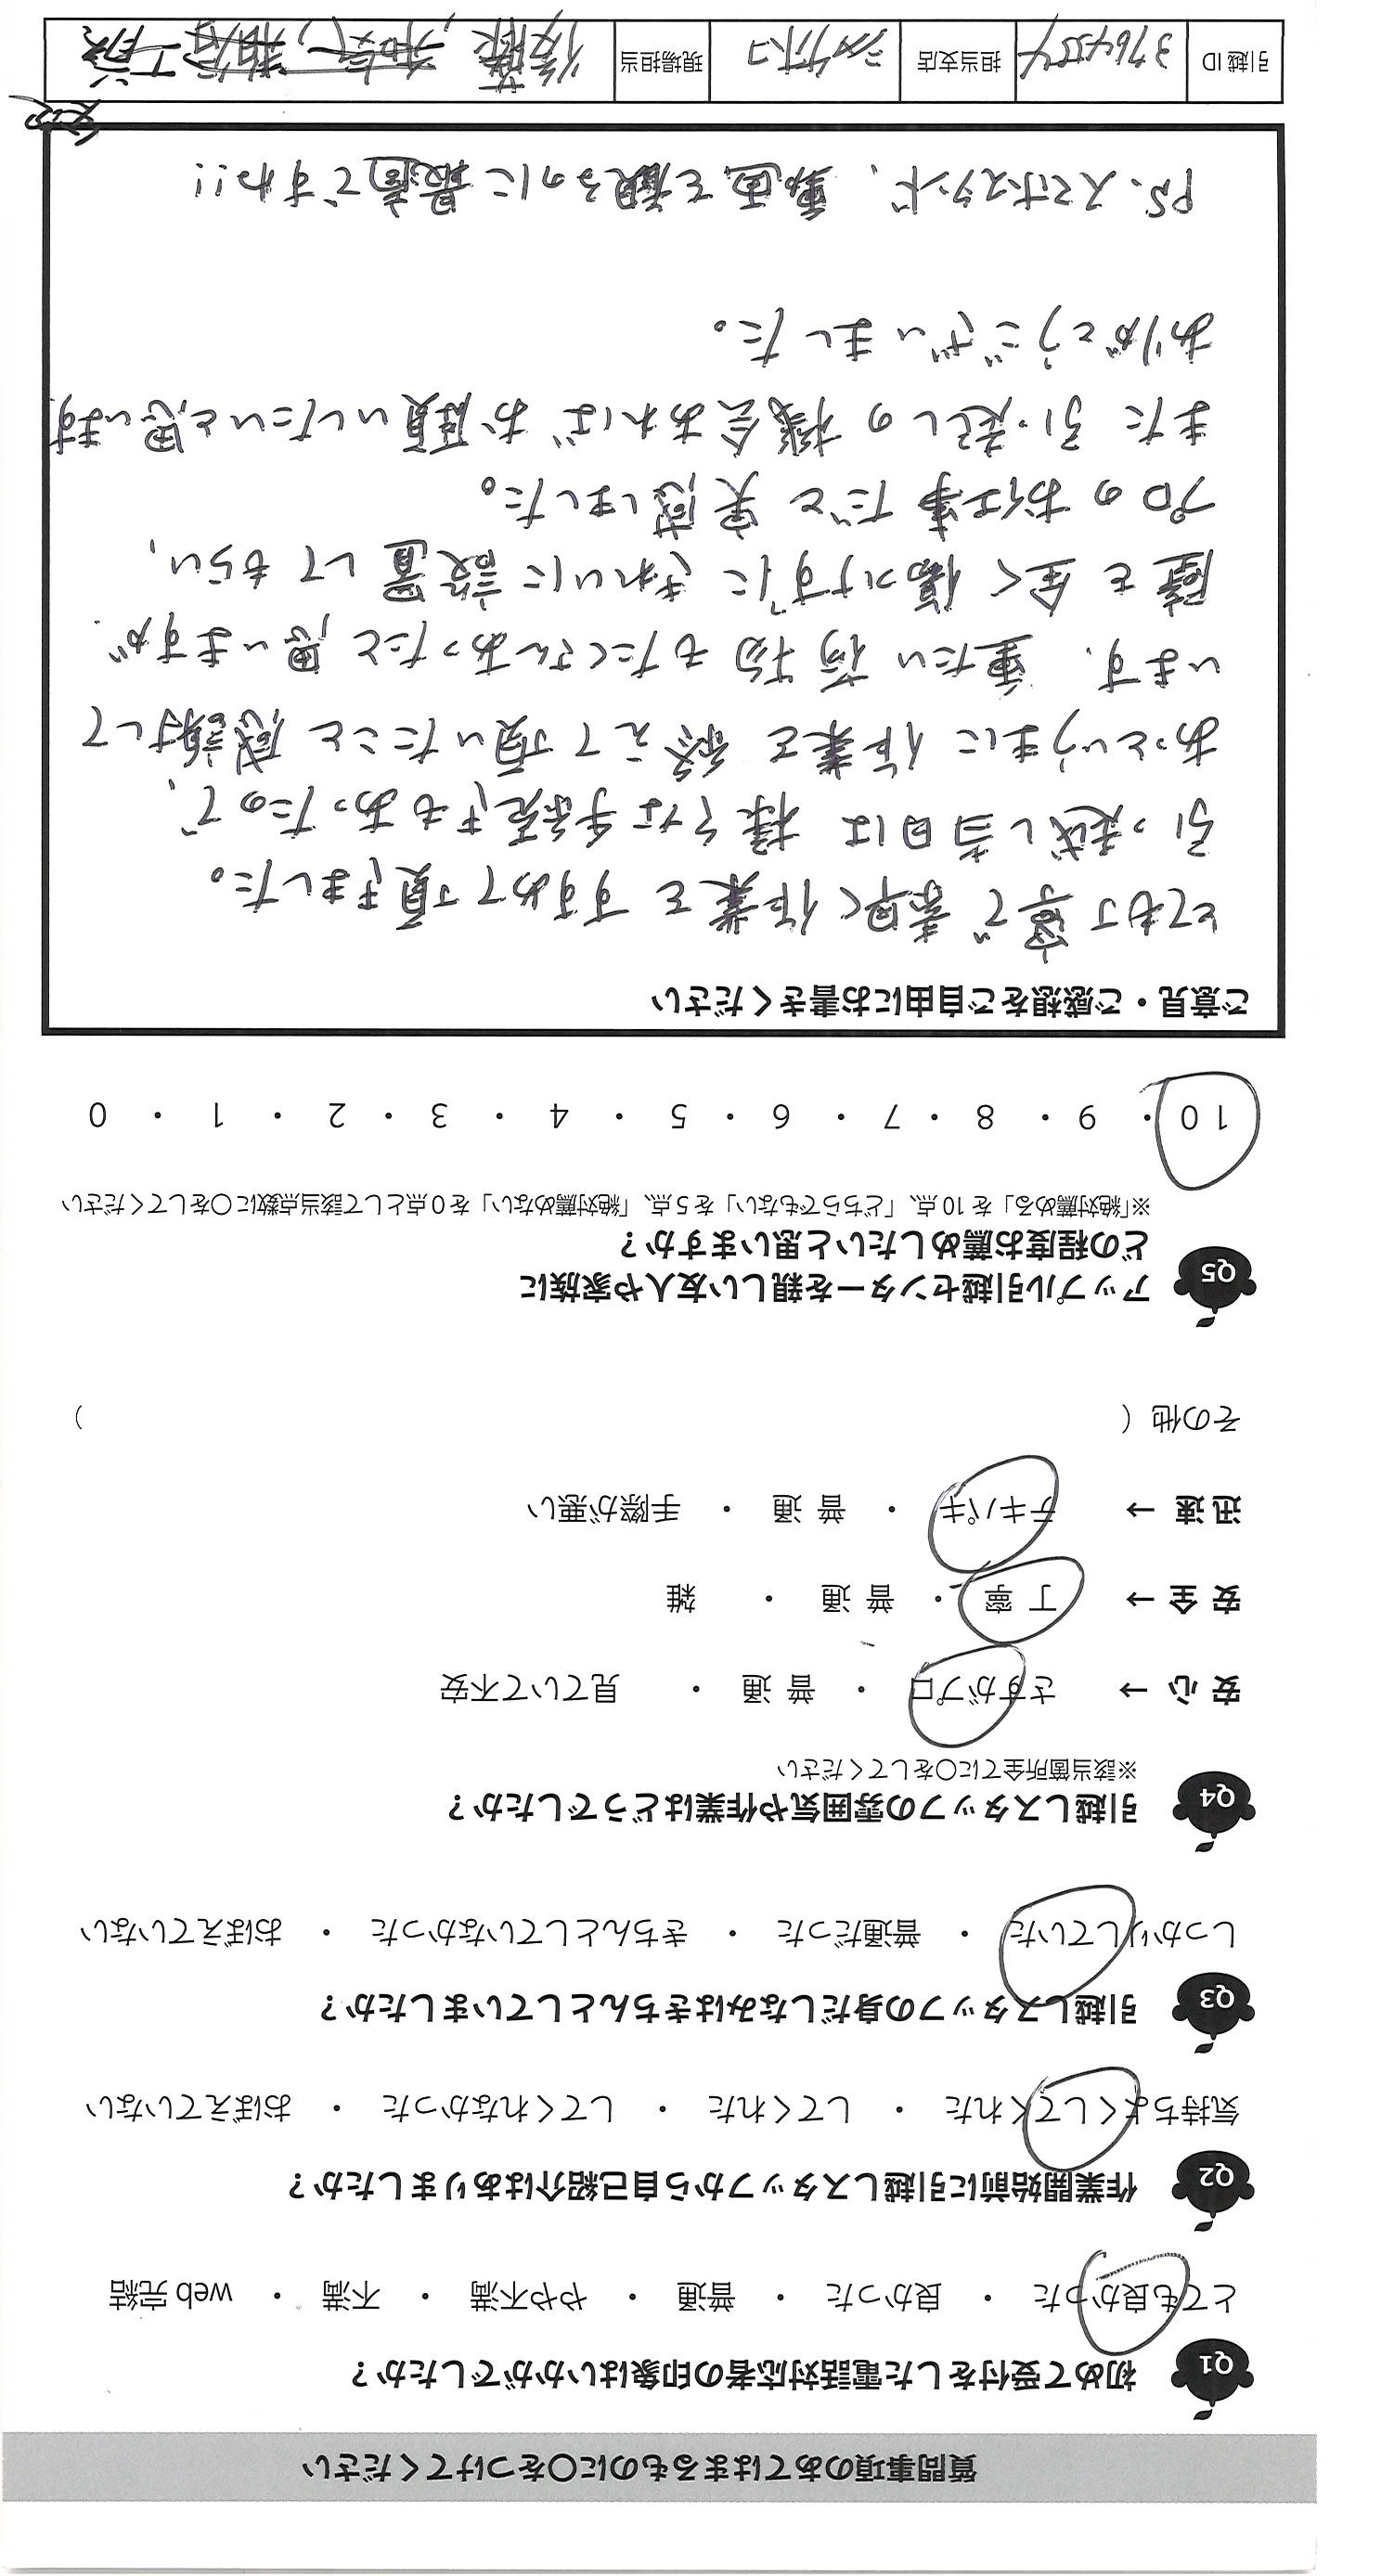 質問事項のあてはまるものに○をつけてください
Q1 初めて受付をした電話対応者の印象はいかがでしたか？
とても良かった ・ 良かった ・ 普通 ・ やや不満 ・ 不満 ・ web 完結
Q2 作業開始前に引越しスタッフから自己紹介はありましたか？
気持ちよくしてくれた ・ してくれた ・ してくれなかった ・ おぼえていない
Q3 引越しスタッフの身だしなみはきちんとしていましたか？
しっかりしていた ・ 普通だった ・ きちんとしていなかった ・ おぼえていない
Q4 引越しスタッフの雰囲気や作業はどうでしたか？
※該当箇所全てに○をしてください
安 心 → さすがプロ ・ 普 通 ・ 見ていて不安
安 全 → 丁 寧 ・ 普 通 ・ 雑
迅 速 → テキパキ ・ 普 通 ・ 手際が悪い
その他（ ）
Q5 アップル引越センターを親しい友人や家族に
どの程度お薦めしたいと思いますか？
※「絶対薦める」を 10 点、「どちらでもない」を 5 点、「絶対薦めない」を 0 点として該当点数に○をしてください
10 ・ 9 ・ 8 ・ 7 ・ 6 ・ 5 ・ 4 ・ 3 ・ 2 ・ 1 ・ 0
ご意見・ご感想をご自由にお書きください
とても丁寧で素早く作業をすすめて頂きました。
引っ越し当日は様々な手続きもあったので、
あっというまに作業を終えて頂いたこと感謝して
います。重たい荷物もたくさんあったと思いますが、
壁を全く傷つけずにきれいに設置してもらい、
プロのお仕事だと実感しました。
また引っ越しの機会あればお願いしたいと思います
ありがとうございました。
P.S. スマホスタンド、動画を観るのに最適ですね!!
引越 ID 3764554 担当支店 現場担当 後藤